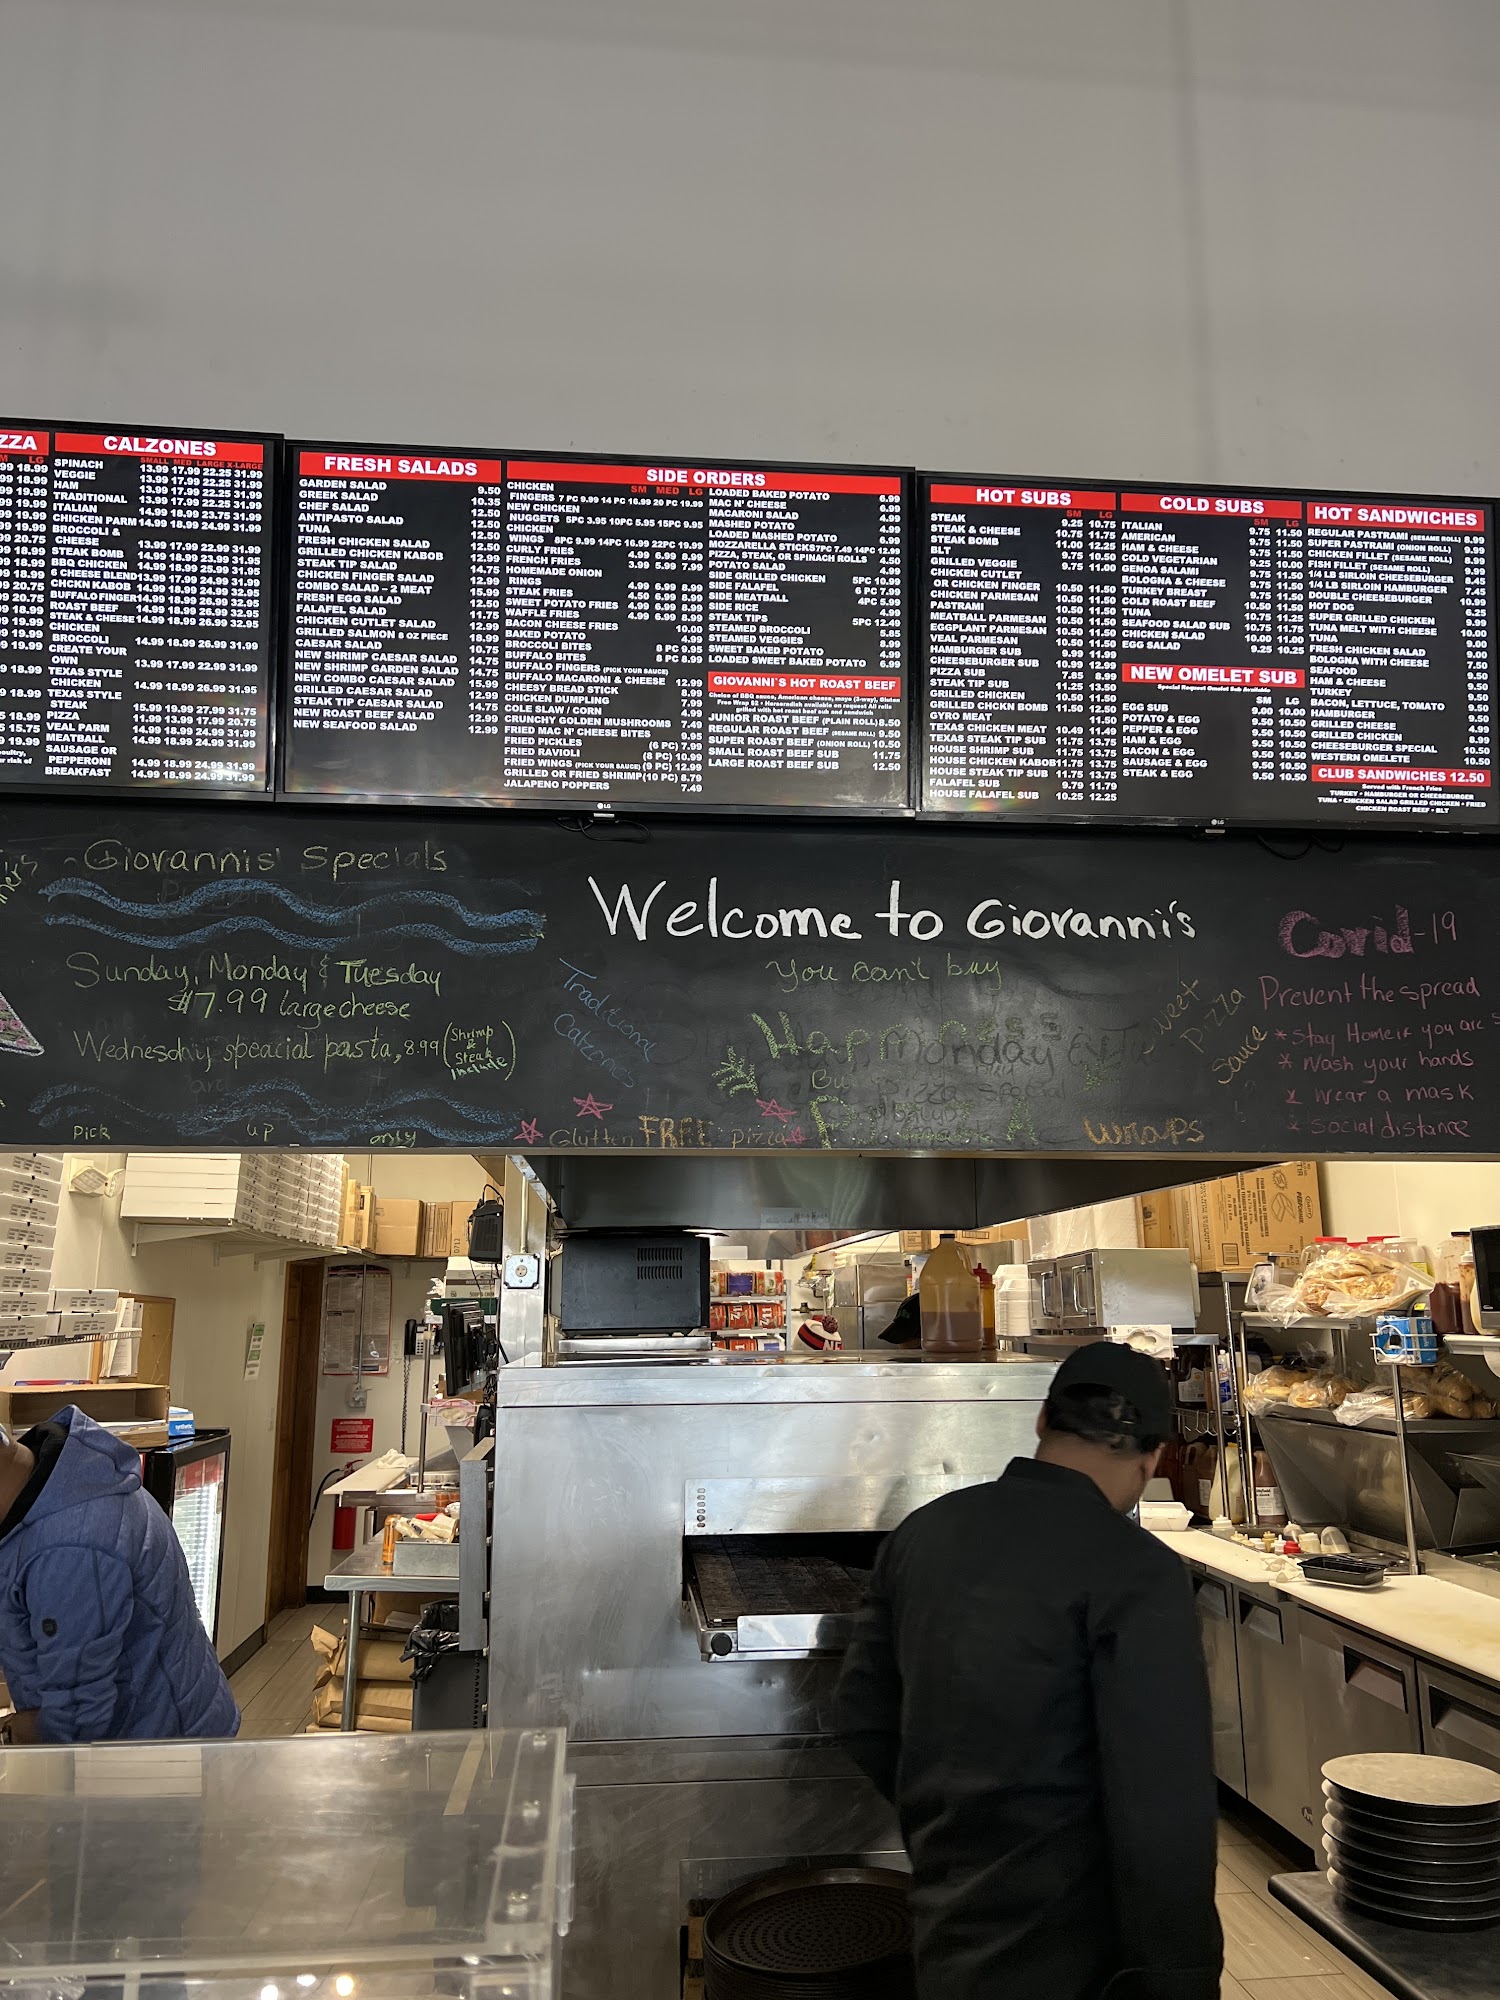 ZZA
LG
CALZONES
SMALL MED LARGE X-LARGE
SPINACH 13.99 17.99 22.25 31.99
VEGGIE 13.99 17.99 22.25 31.99
HAM 13.99 17.99 22.25 31.99
TRADITIONAL 13.99 17.99 22.25 31.99
ITALIAN 14.99 18.99 23.75 31.99
CHICKEN PARM 14.99 18.99 24.99 31.99
BROCCOLI &
CHEESE 13.99 17.99 22.99 31.99
STEAK BOMB 14.99 18.99 23.99 31.95
BBQ CHICKEN 14.99 18.99 25.99 31.95
6 CHEESE BLEND 13.99 17.99 24.99 31.99
CHKN KABOB 14.99 18.99 24.99 32.95
BUFFALO FINGER 14.99 18.99 26.99 32.95
ROAST BEEF 14.99 18.99 26.95 32.95
STEAK & CHEESE
CHICKEN
BROCCOLI 14.99 18.99 26.99 31.99
CREATE YOUR
OWN 13.99 17.99 22.99 31.99
TEXAS STYLE
CHICKEN 14.99 18.99 26.99 31.95
TEXAS STYLE
STEAK 15.99 19.99 27.99 31.75
PIZZA 11.99 13.99 17.99 20.75
VEAL PARM 14.99 18.99 24.99 31.99
MEATBALL 14.99 18.99 24.99 31.99
SAUSAGE OR
PEPPERONI 14.99 18.99 24.99 31.99
BREAKFAST 14.99 18.99 24.99 31.99
FRESH SALADS
GARDEN SALAD 9.50
GREEK SALAD 10.35
CHEF SALAD 12.50
ANTIPASTO SALAD 12.50
TUNA 12.50
FRESH CHICKEN SALAD 12.50
GRILLED CHICKEN KABOB 12.99
STEAK TIP SALAD 14.75
CHICKEN FINGER SALAD 12.99
COMBO SALAD - 2 MEAT 15.99
FRESH EGG SALAD 12.50
FALAFEL SALAD 11.75
CHICKEN CUTLET SALAD 12.99
GRILLED SALMON 8 OZ PIECE 18.99
CAESAR SALAD 10.75
NEW SHRIMP CAESAR SALAD 14.75
NEW SHRIMP GARDEN SALAD 14.75
NEW COMBO CAESAR SALAD 15.99
GRILLED CAESAR SALAD 12.99
STEAK TIP CAESAR SALAD 14.75
NEW ROAST BEEF SALAD 12.99
NEW SEAFOOD SALAD 12.99
SIDE ORDERS
SM MED LG
CHICKEN
FINGERS 7 PC 9.99 14 PC 16.99 20 PC 19.99
NEW CHICKEN
NUGGETS 5PC 3.95 10PC 5.95 15PC 9.95
CHICKEN
WINGS 8PC 9.99 14PC 16.99 22PC 19.99
CURLY FRIES 4.99 6.99 8.99
FRENCH FRIES 3.99 5.99 7.99
HOMEMADE ONION
RINGS 4.99 6.99 8.99
STEAK FRIES 4.50 6.99 8.99
SWEET POTATO FRIES 4.99 6.99 8.99
WAFFLE FRIES 4.99 6.99 8.99
BACON CHEESE FRIES 10.00
BAKED POTATO 4.99
BROCCOLI BITES 8 PC 9.95
BUFFALO BITES 8 PC 8.99
BUFFALO FINGERS (PICK YOUR SAUCE)
BUFFALO MACARONI & CHEESE 12.99
CHEESY BREAD STICK 8.99
CHICKEN DUMPLING 7.99
COLE SLAW / CORN 4.99
CRUNCHY GOLDEN MUSHROOMS 7.49
FRIED MAC N' CHEESE BITES 9.95
FRIED PICKLES (6 PC) 7.99
FRIED RAVIOLI (8 PC) 10.99
FRIED WINGS (PICK YOUR SAUCE) (9 PC) 12.99
GRILLED OR FRIED SHRIMP (10 PC) 8.79
JALAPENO POPPERS 7.49
LOADED BAKED POTATO 6.99
MAC N' CHEESE 6.99
MACARONI SALAD 4.99
MASHED POTATO 4.99
LOADED MASHED POTATO 6.99
MOZZARELLA STICKS 7PC 7.49 14PC 12.99
PIZZA, STEAK, OR SPINACH ROLLS 4.50
POTATO SALAD 4.99
SIDE GRILLED CHICKEN 5PC 10.99
SIDE FALAFEL 6 PC 7.99
SIDE MEATBALL 4PC 5.99
SIDE RICE 4.99
STEAK TIPS 5PC 12.49
STEAMED BROCCOLI 5.85
STEAMED VEGGIES 8.99
SWEET BAKED POTATO 4.99
LOADED SWEET BAKED POTATO 6.99
GIOVANNI'S HOT ROAST BEEF
Choice of BBQ sauce, American cheese, mayo (3-way), Gluten
Free Wrap $2 • Horseradish available on request All rolls
grilled with hot roast beef sub and sandwich
JUNIOR ROAST BEEF (PLAIN ROLL) 8.50
REGULAR ROAST BEEF (SESAME ROLL) 9.50
SUPER ROAST BEEF (ONION ROLL) 10.50
SMALL ROAST BEEF SUB 11.75
LARGE ROAST BEEF SUB 12.50
HOT SUBS
SM LG
STEAK 9.25 10.75
STEAK & CHEESE 10.75 11.75
STEAK BOMB 11.00 12.25
BLT 9.75 10.50
GRILLED VEGGIE 9.75 11.00
CHICKEN CUTLET
OR CHICKEN FINGER 10.50 11.50
CHICKEN PARMESAN 10.50 11.50
PASTRAMI 10.50 11.50
MEATBALL PARMESAN 10.50 11.50
EGGPLANT PARMESAN 10.50 11.50
VEAL PARMESAN 10.50 11.50
HAMBURGER SUB 9.99 11.99
CHEESEBURGER SUB 10.99 12.99
PIZZA SUB 7.85 8.99
STEAK TIP SUB 11.25 13.50
GRILLED CHICKEN 10.50 11.50
GRILLED CHCKN BOMB 11.50 12.50
GYRO MEAT 11.50
TEXAS CHICKEN MEAT 10.49 11.49
TEXAS STEAK TIP SUB 11.75 13.75
HOUSE SHRIMP SUB 11.75 13.75
HOUSE CHICKEN KABOB 11.75 13.75
HOUSE STEAK TIP SUB 11.75 13.75
FALAFEL SUB 9.79 11.79
HOUSE FALAFEL SUB 10.25 12.25
COLD SUBS
SM LG
ITALIAN 9.75 11.50
AMERICAN 9.75 11.50
HAM & CHEESE 9.75 11.50
COLD VEGETARIAN 9.25 10.00
GENOA SALAMI 9.75 11.50
BOLOGNA & CHEESE 9.75 11.50
TURKEY BREAST 9.75 11.50
COLD ROAST BEEF 10.50 11.50
TUNA 10.75 11.25
SEAFOOD SALAD SUB 10.75 11.75
CHICKEN SALAD 10.00 11.00
EGG SALAD 9.25 10.25
NEW OMELET SUB
Special Request Omelet Sub Available
SM LG
EGG SUB 9.00 10.00
POTATO & EGG 9.50 10.50
PEPPER & EGG 9.50 10.50
HAM & EGG 9.50 10.50
BACON & EGG 9.50 10.50
SAUSAGE & EGG 9.50 10.50
STEAK & EGG 9.50 10.50
HOT SANDWICHES
REGULAR PASTRAMI (SESAME ROLL) 8.99
SUPER PASTRAMI (ONION ROLL) 9.99
CHICKEN FILLET (SESAME ROLL) 8.99
FISH FILLET (SESAME ROLL) 9.99
1/4 LB SIRLOIN CHEESEBURGER 8.45
1/4 LB SIRLOIN HAMBURGER 7.45
DOUBLE CHEESEBURGER 10.99
HOT DOG 6.25
SUPER GRILLED CHICKEN 9.99
TUNA MELT WITH CHEESE 10.00
TUNA 9.00
FRESH CHICKEN SALAD 9.00
BOLOGNA WITH CHEESE 7.50
SEAFOOD
HAM & CHEESE 9.50
TURKEY 9.50
BACON, LETTUCE, TOMATO 9.50
HAMBURGER 10.50
GRILLED CHEESE
GRILLED CHICKEN 8.99
CHEESEBURGER SPECIAL 10.50
WESTERN OMELETE 10.50
CLUB SANDWICHES 12.50
Served with French Fries
TURKEY • HAMBURGER OR CHEESEBURGER
TUNA • CHICKEN SALAD GRILLED CHICKEN • FRIED
CHICKEN ROAST BEEF • BLT
LG
LG
Giovannis' Specials
Sunday, Monday & Tuesday
$7.99 large cheese
Wednesday speacial pasta, 8.99 (Shrimp & Steak include)
Pick up only
Traditional
Calzones
Welcome to Giovanni's
You can't buy
Happiness
Monday
Pizza Special
Glutten FREE Pizza
Wraps
Sweet
Pizza
Sauce
Covid-19
Prevent the spread
* Stay Home if you are s
* Wash your hands
* Wear a mask
* Social distance